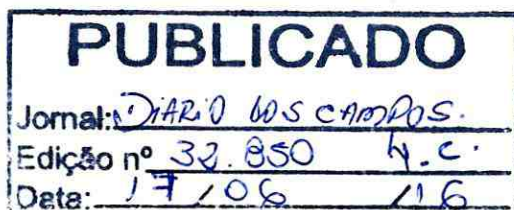 PUBLICADO
Jornal: DIARIO DOS CAMPOS.
Edição nº 32.850 4.C.
Data: 17/06/16